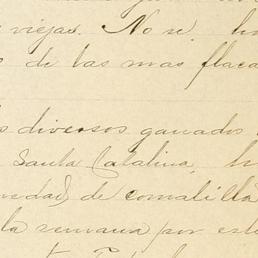 viejas. No se
de las mas flaca
diversos ganados
Santa Catalina, h
de comalilla
la semana por est